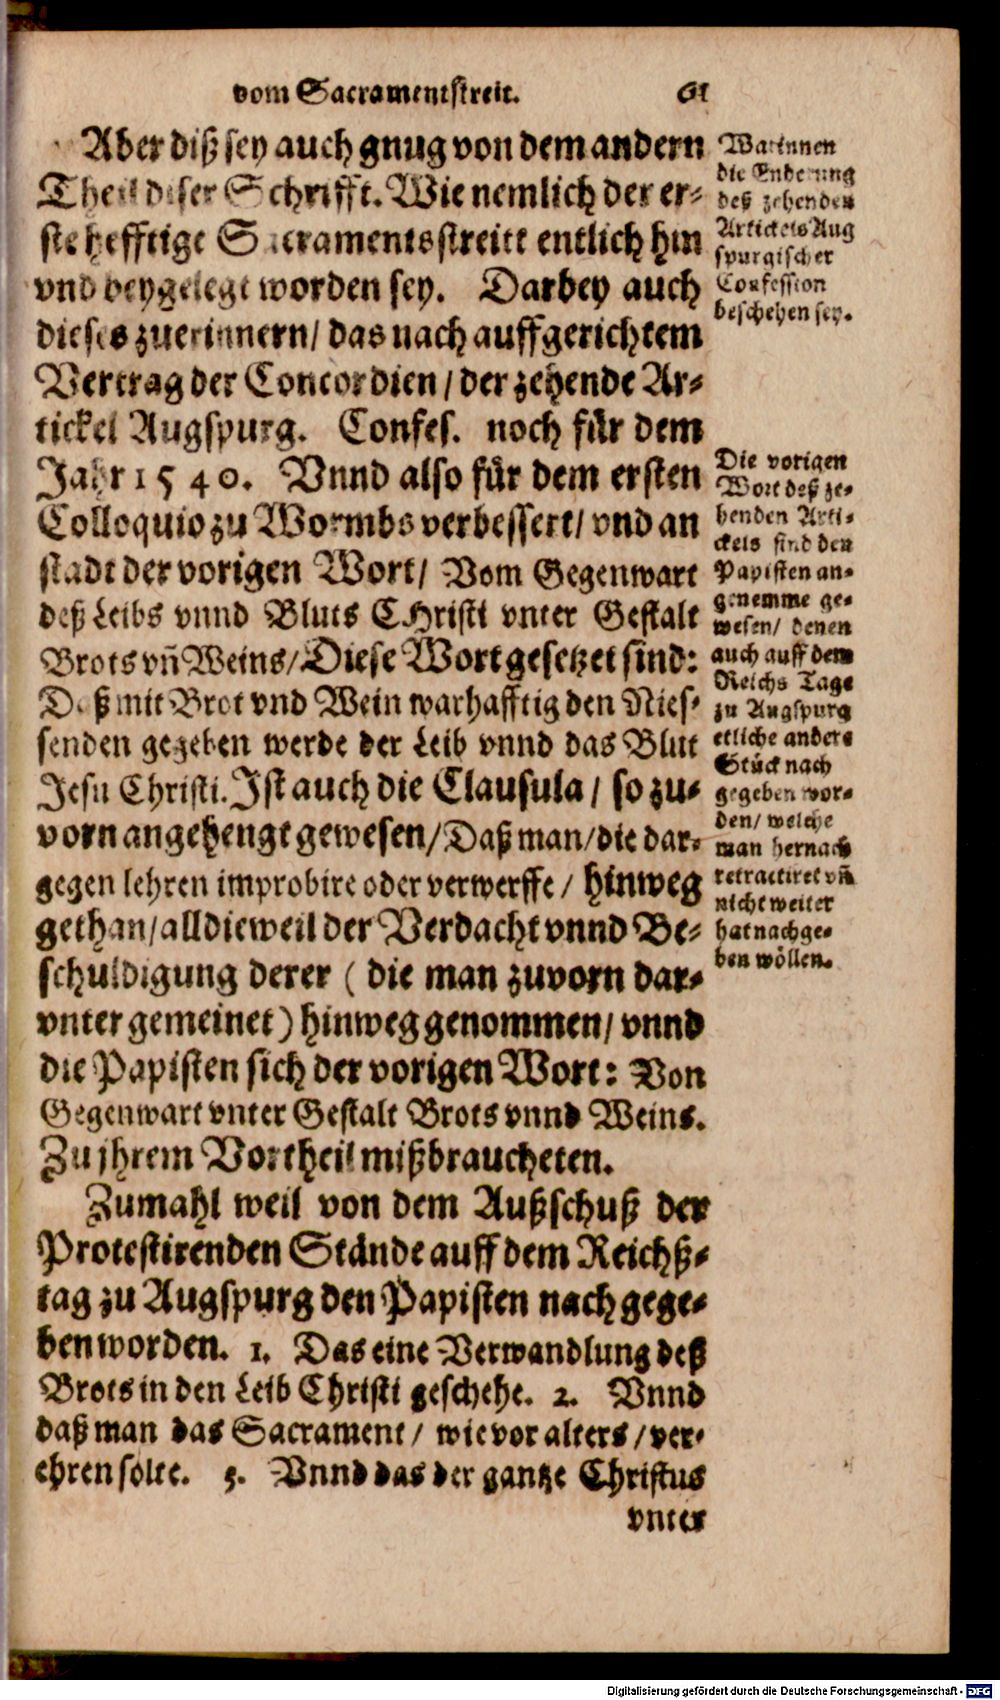 vom Sacramentstreit. 61
Aber diß sey auch gnug von dem andern
Theil diser Schrifft. Wie nemlich der er-
ste hefftige Sacramentsstreitt entlich hin
vnd beygelegt worden sey. Darbey auch
dieses zuerinnern/ das nach auffgerichtem
Vertrag der Concordien / der zehende Ar-
tickel Augspurg. Confes. noch für dem
Jahr 1540. Vnnd also für dem ersten
Colloquio zu Wormbs verbessert/ vnd an
stadt der vorigen Wort/ Vom Gegenwart
deß Leibs vnnd Bluts CHristi vnter Gestalt
Brots vñ Weins/ Diese Wort gesetzet sind:
Daß mit Brot vnd Wein warhafftig den Nies-
senden gegeben werde der Leib vnnd das Blut
Jesu Christi. Ist auch die Clausula / so zu-
vorn angehengt gewesen/ Daß man/ die dar-
gegen lehren improbire oder verwerffe / hinweg
gethan/ alldieweil der Verdacht vnnd Be-
schuldigung derer ( die man zuvorn dar-
vnter gemeinet) hinweg genommen/ vnnd
die Papisten sich der vorigen Wort: Von
Gegenwart vnter Gestalt Brots vnnd Weins.
Zu jhrem Vortheil mißbraucheten.
Zumahl weil von dem Außschuß der
Protestirenden Stände auff dem Reichß-
tag zu Augspurg den Papisten nach gege-
ben worden. 1. Das eine Verwandlung deß
Brots in den Leib Christi geschehe. 2. Vnnd
daß man das Sacrament / wie vor alters / ver-
ehren solte. 3. Vnnd das der gantze Christus
vnter
Warinnen
die Enderung
deß zehenden
Artickels Aug
spurgischer
Confession
beschehen sey.
Die vorigen
Wort deß ze-
henden Arti-
ckels sind den
Papisten an-
genemme ge-
wesen/ denen
auch auff dem
Reichs Tage
zu Augspurg
etliche andere
Stück nach
gegeben wor-
den/ welche
man hernach
retractiret vñ
nicht weiter
hat nachge-
ben wöllen.
Digitalisierung gefördert durch die Deutsche Forschungsgemeinschaft - DFG